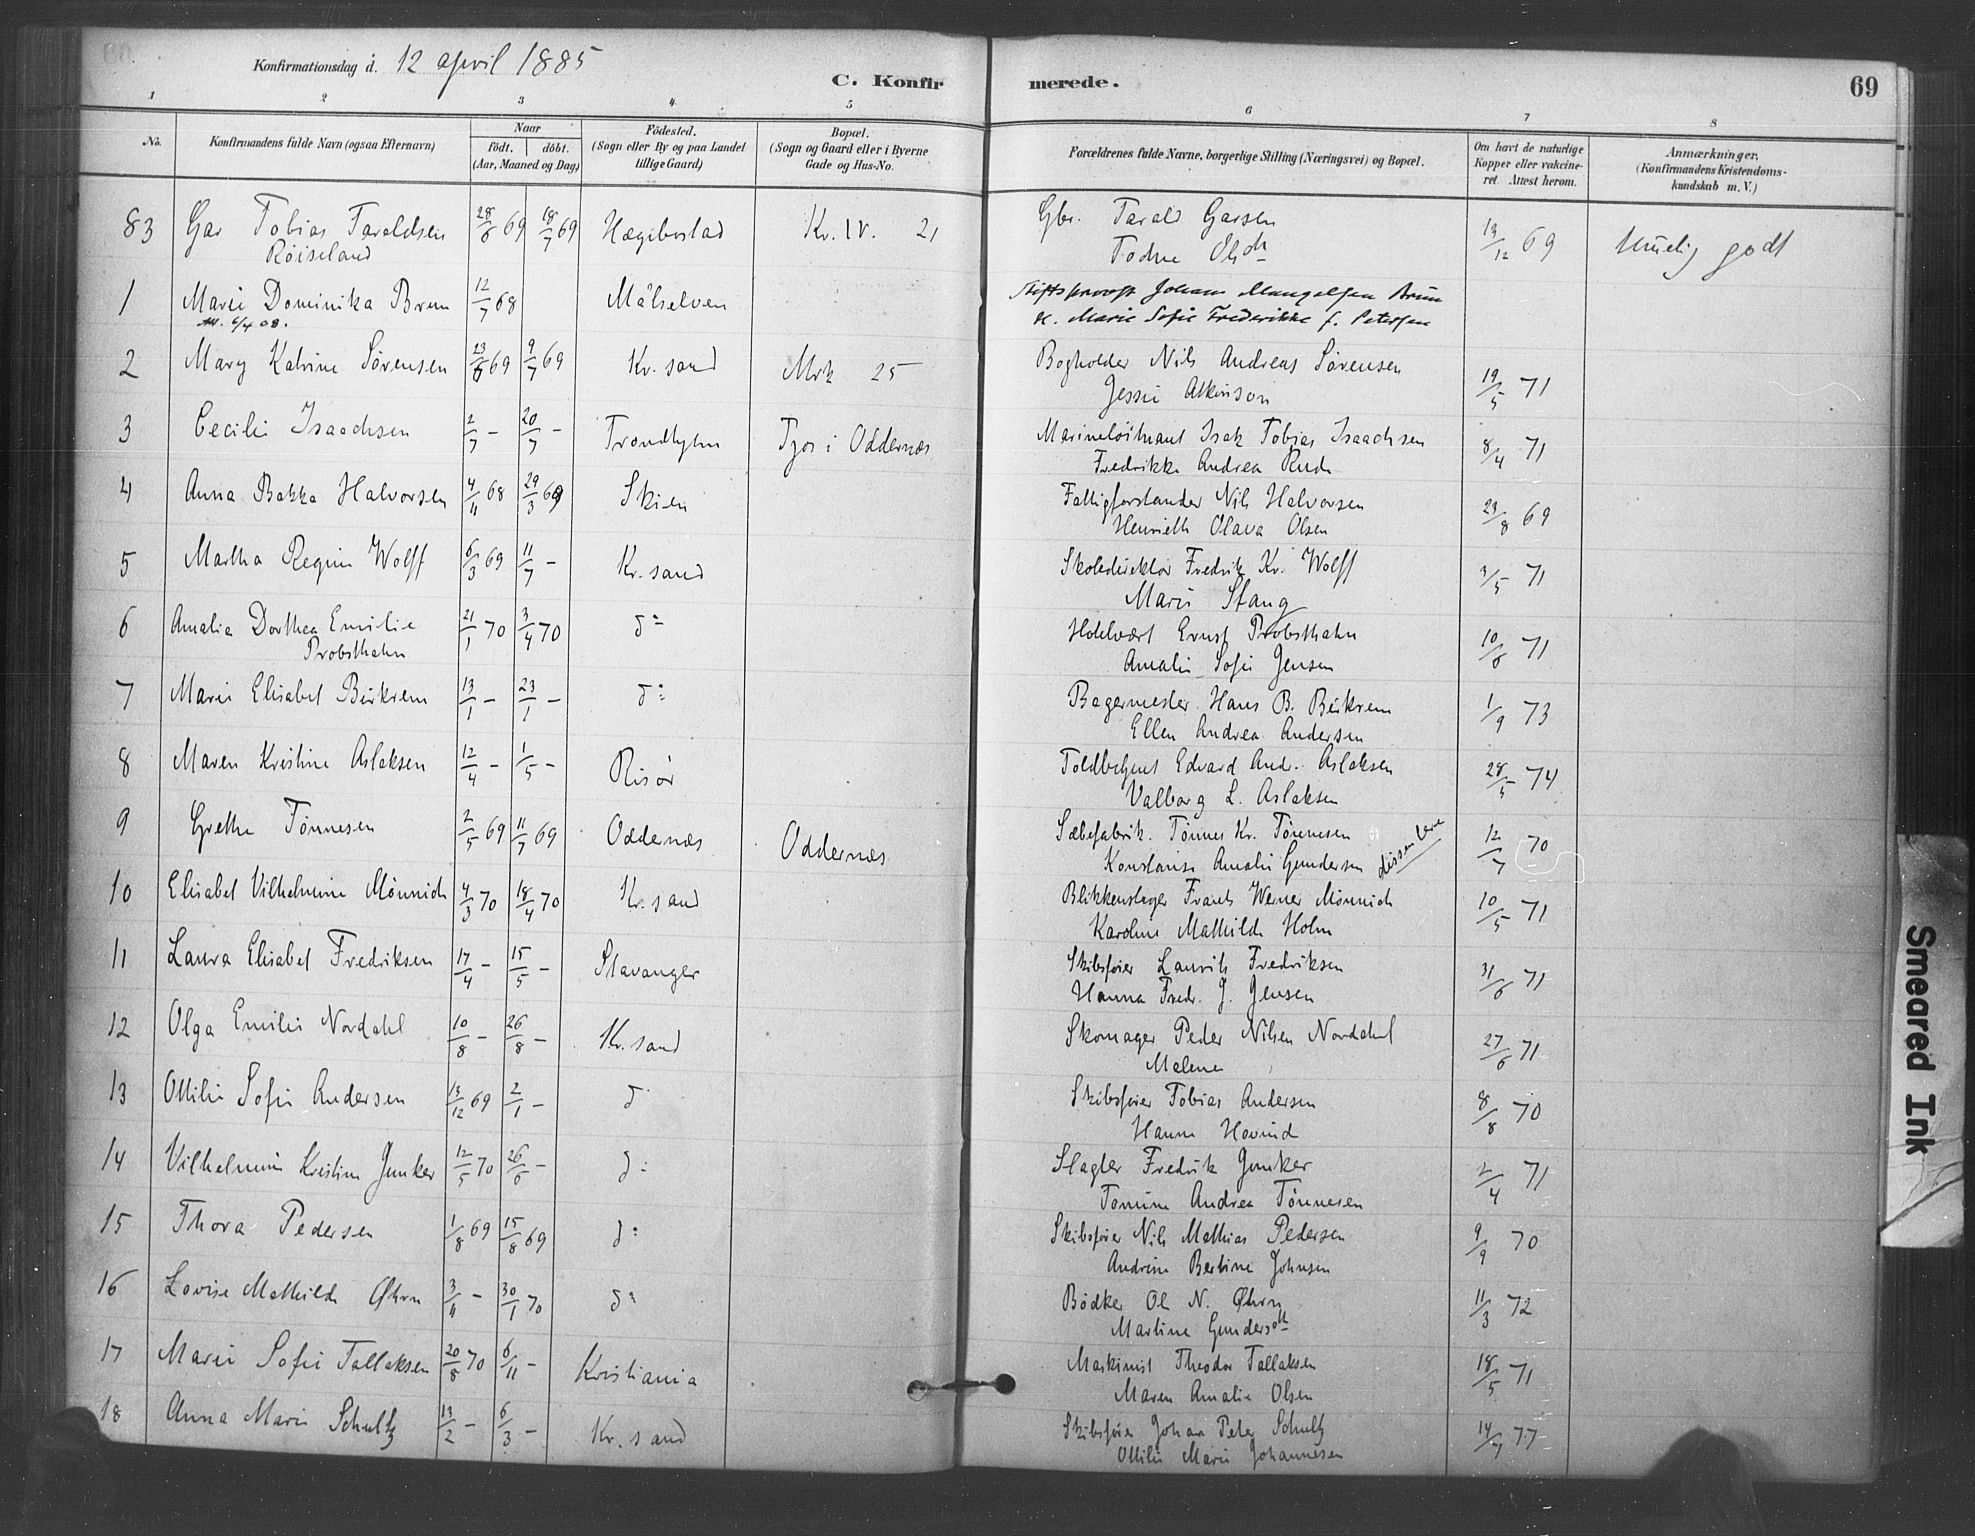 Konfirmationsdag d. 12 april 1885
C. Konfirmerede. 69
1 2 3 4 5 6 7 8
No. Konfirmandens fulde Navn (ogsaa Efternavn) Naar födt. döbt. (Aar, Maaned og Dag) Födested. (Sogn eller By og paa Landet tillige Gaard) Bopæl. (Sogn og Gaard eller i Byerne Gade og Hus-No. Forældrenes fulde Navne, borgerlige Stilling (Næringsvei) og Bopæl. Om havt de naturlige Kopper eller vakcineret. Attest herom. Anmærkninger. (Konfirmandens Kristendomskundskab m. V.)
83 Gar Tobias Taraldsen 28/6 69 18/7 69 Hægebostad Kr. IV. 21 Gbr. Tarald Garsen 13/12 69 godt
Röiseland Todne Olsdtr
1 Marie Dominika Brun 12/7 68 Målselven Stiftsprovst Johan Brun
6/4 08. H. Marie Sofie Frederikke f. Petersen
2 Mary Katrine Sörensen 23/6 69 9/7 69 Kr. sand Mrk 25 Bogholder Nils Andreas Sörensen 19/5 71
Jessie Atkinson
3 Cecilie Isaachsen 2/7 - 20/7 - Trondhjem Tjos i Oddernæs Marinelöitnant Isak Tobias Isaachsen 8/4 71
Fredrikke Andrea Rud
4 Anna Bakka Halvorsen 4/11 68 29/3 69 Skien Fattigforstander Nils Halvorsen 23/8 69
Henriette Olava Olsen
5 Martha Regine Wolff 6/3 69 11/7 - Kr. sand Skoledirektör Fredrik Kr. Wolff 3/5 71
Marie Stang
6 Amalia Dorthea Emilie 21/1 70 3/4 70 do Hotelvært Ernst Probsthahn 10/6 71
Probsthahn Amalie Sofie Jensen
7 Marie Elisabet Birkrem 13/1 - 23/1 - do Bagermester Hans B. Birkrem 1/9 73
Ellen Andrea Andersen
8 Maren Kristine Aslaksen 12/4 - 1/5 - Risör Toldbetjent Edvard And. Aslaksen 28/5 74
Valborg L. Aslaksen
9 Grethe Tönnesen 2/5 69 11/7 69 Oddernæs Oddernæs Sæbefabrik. Tönnes Kr. Tönnesen 12/7 70
Konstanse Amalie Gundersen
10 Elisabet Vilhelmine Mönnich 4/3 70 18/4 70 Kr. sand Blikkenslager Frants Werner Mönnich 10/5 71
Karoline Mathilde Holm
11 Laura Elisabet Fredriksen 17/4 - 15/5 - Stavanger Skibsförer Laurits Fredriksen 31/6 71
Hanna Fredr. J. Jensen
12 Olga Emilie Nordahl 10/8 - 26/8 - Kr. sand Skomager Peder Nilsen Nordahl 27/6 71
Malene
13 Ottilie Sofie Andersen 13/12 69 2/1 - do Skibsförer Tobias Andersen 8/8 70
Hanne Hovind
14 Vilhelmine Kristine Junker 12/5 70 26/6 - do Slagter Fredrik Junker 2/4 71
Tomine Andrea Tönnesen
15 Thora Pedersen 1/8 69 15/8 69 do Skibsförer Nils Mathias Pedersen 9/9 70
Andrine Bertine Johnsen
16 Lovise Mathilde Öhrn 3/11 - 30/1 70 do Bödker Ol N. Öhrn 11/3 72
Martine Gundersdtr
17 Marie Sofie Tallaksen 20/8 70 6/11 - Kristiania Maskinist Theodor Tallaksen 18/5 71
Maren Amalie Olsen
18 Anna Marie Schultz 13/2 - 6/3 - Kr. sand Skibsförer Johan Peter Schultz 14/7 77
Ottilie Marie Johannesen
Smeared Ink